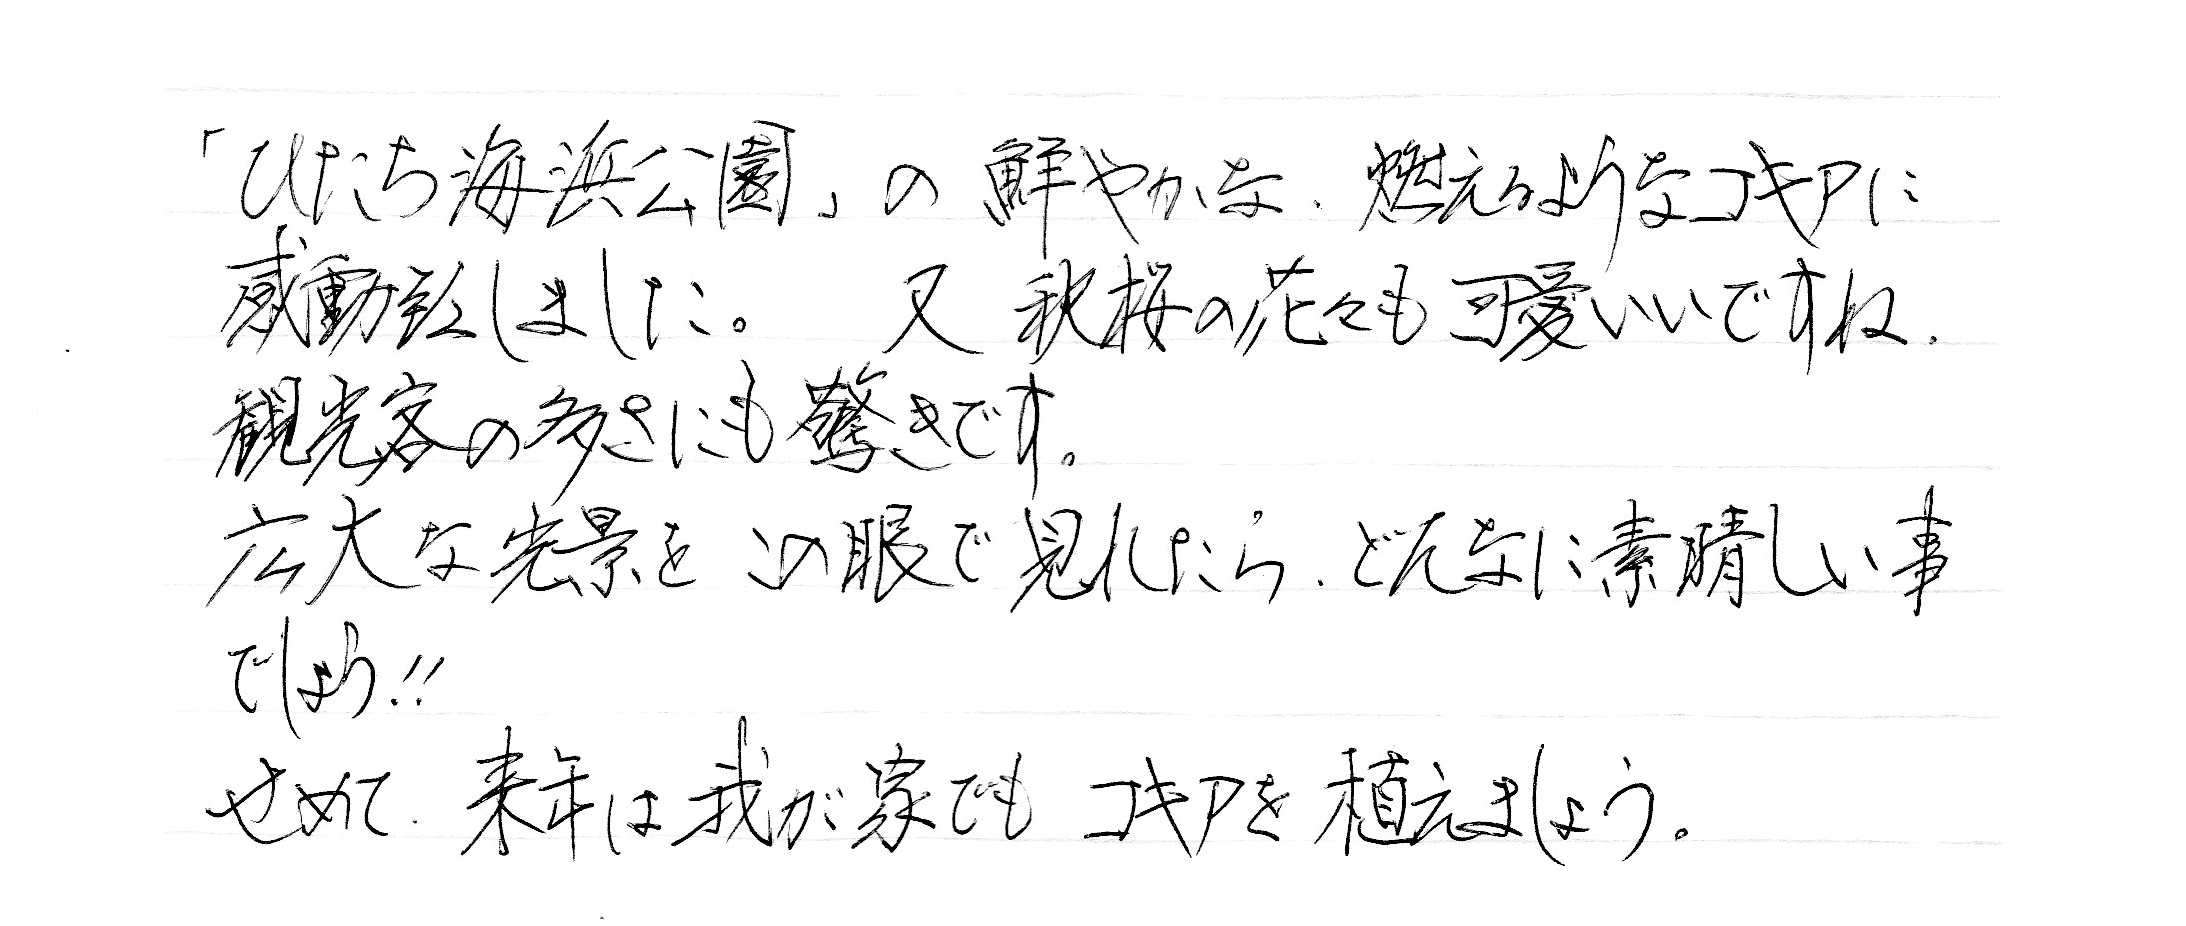 「ひたち海浜公園」の鮮やかな、燃えるようなコキアに
感動致しました。 又 秋桜の花々も可愛いいですね。
観光客の多さにも驚きです。
広大な光景を この眼で見れたら、どんなに素晴しい事
でしょう!!
せめて、来年は我が家でも コキアを植えましょう。